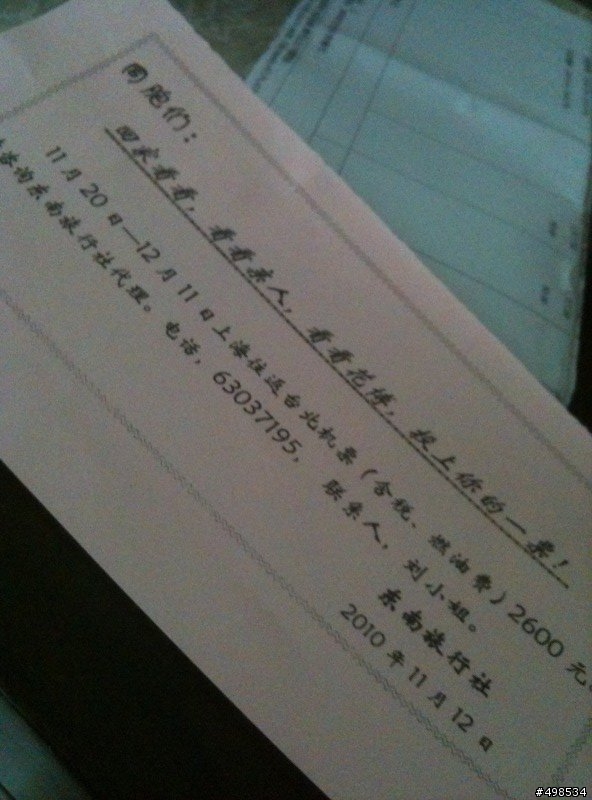 同胞们：
回家看看，看看亲人，看看花博，投上你的一票！
11月20日—12月11日上海往返台北机票（含税、燃油费）2600元
咨询东南旅行社代理。电话，63037195，联系人，刘小姐。
东南旅行社
2010年11月12日
#498534